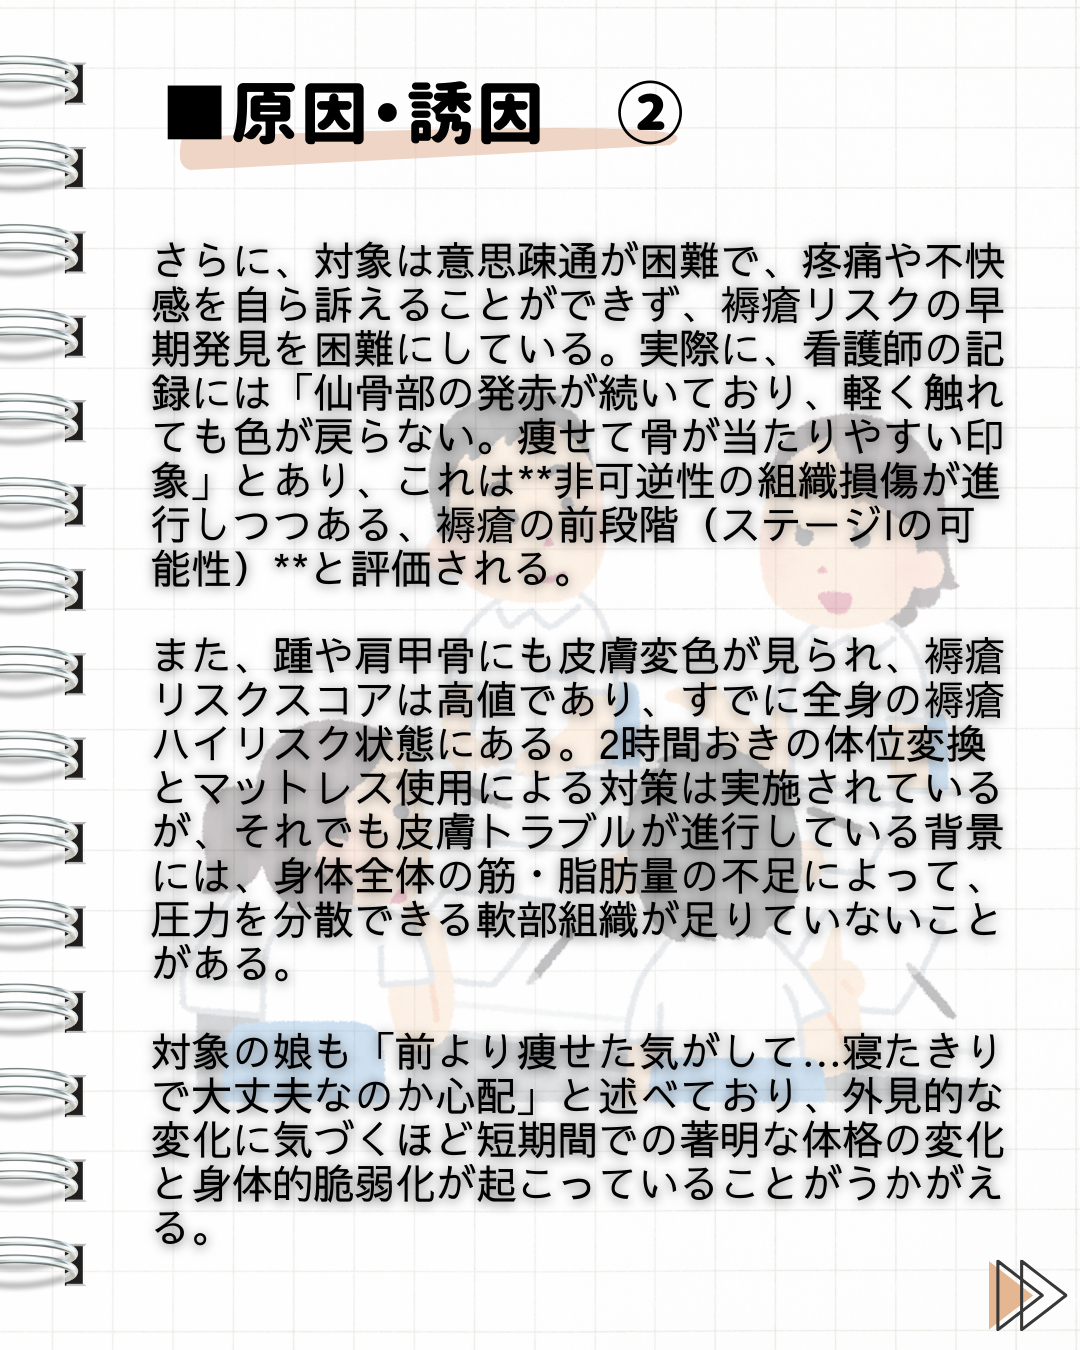 ■原因・誘因　②
さらに、対象は意思疎通が困難で、疼痛や不快
感を自ら訴えることができず、褥瘡リスクの早
期発見を困難にしている。実際に、看護師の記
録には「仙骨部の発赤が続いており、軽く触れ
ても色が戻らない。痩せて骨が当たりやすい印
象」とあり、これは**非可逆性の組織損傷が進
行しつつある、褥瘡の前段階（ステージIの可
能性）**と評価される。
また、踵や肩甲骨にも皮膚変色が見られ、褥瘡
リスクスコアは高値であり、すでに全身の褥瘡
ハイリスク状態にある。2時間おきの体位変換
とマットレス使用による対策は実施されている
が、それでも皮膚トラブルが進行している背景
には、身体全体の筋・脂肪量の不足によって、
圧力を分散できる軟部組織が足りていないこと
がある。
対象の娘も「前より痩せた気がして…寝たきり
で大丈夫なのか心配」と述べており、外見的な
変化に気づくほど短期間での著明な体格の変化
と身体的脆弱化が起こっていることがうかがえ
る。